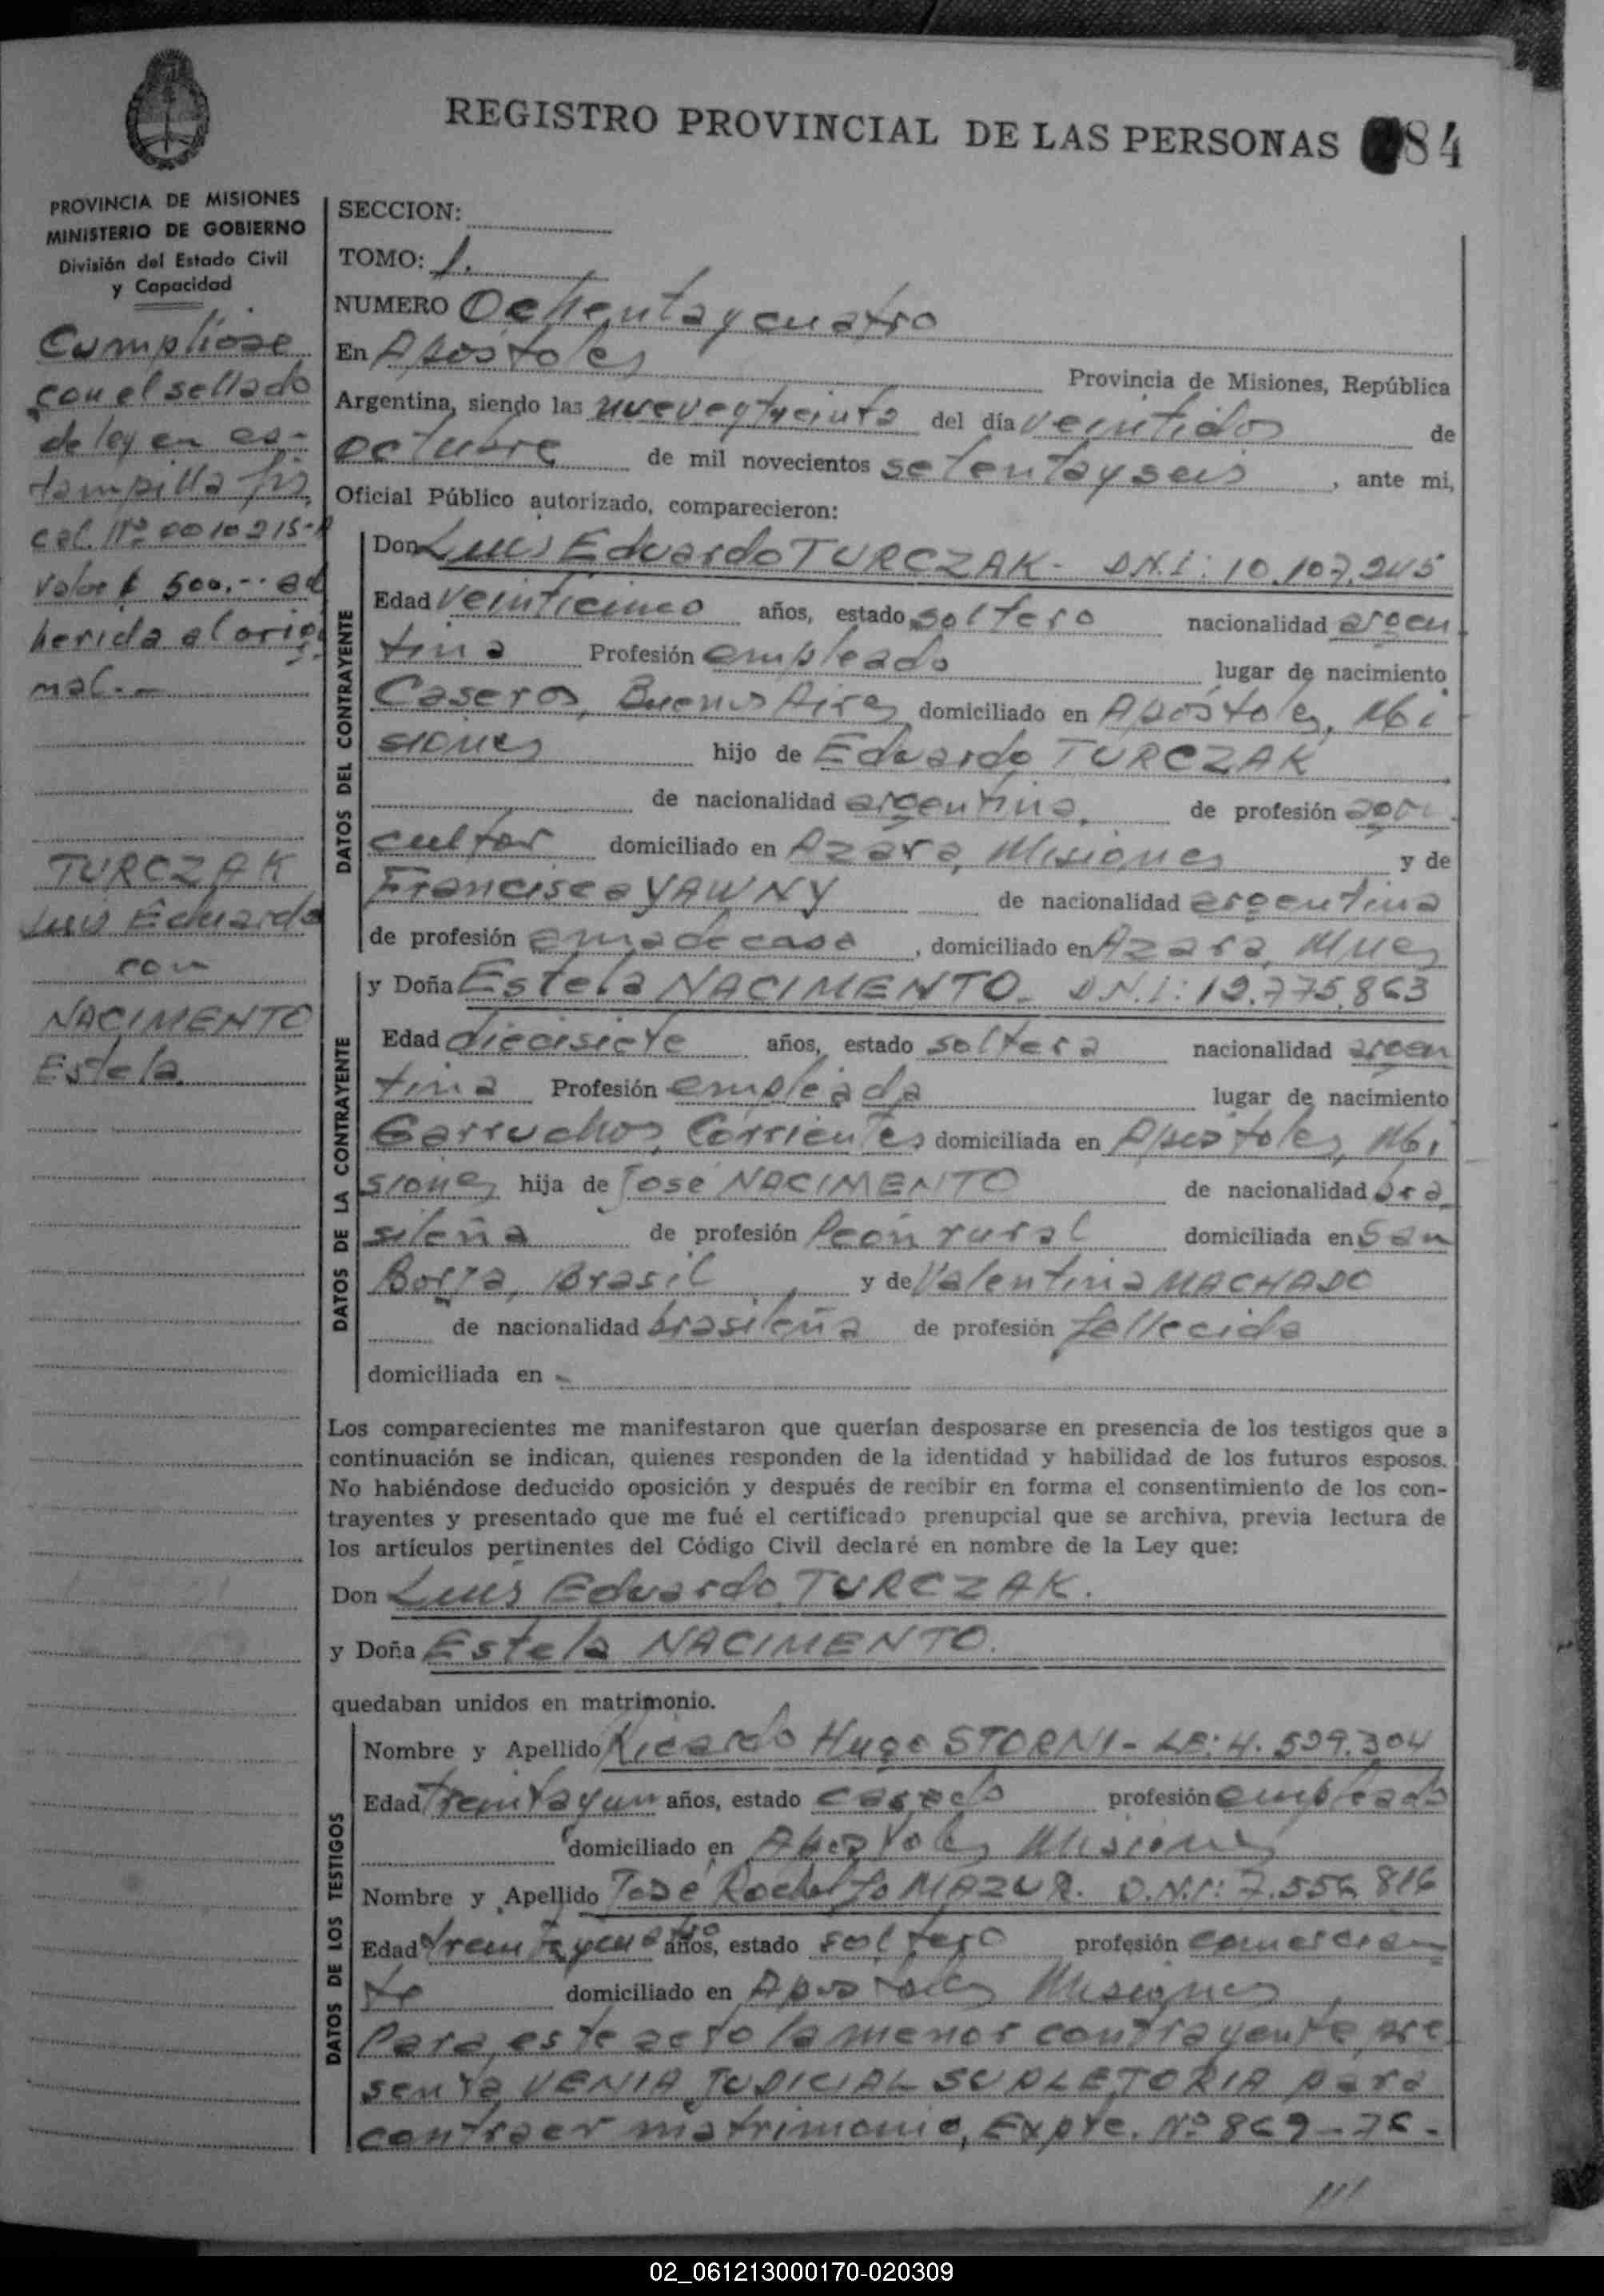 REGISTRO PROVINCIAL DE LAS PERSONAS 84
PROVINCIA DE MISIONES
MINISTERIO DE GOBIERNO
División del Estado Civil
y Capacidad
Cumpliose
con el sellado
de ley en es-
tampilla fis
cal. Nº 0010215-
valor $ 500.-- ad
herida al origi
nal.-
TURCZAK
Luis Eduardo
con
NACIMENTO
Estela
SECCION:
TOMO: 1.
NUMERO Ochenta y cuatro
En Apostoles Provincia de Misiones, República
Argentina, siendo las nueve y treinta del día veintidos de
octubre de mil novecientos setenta y seis, ante mi,
Oficial Público autorizado, comparecieron:
DATOS DEL CONTRAYENTE
Don Luis Eduardo TURCZAK- D.N.I: 10.107.245
Edad veinticinco años, estado soltero nacionalidad argen
tina Profesión empleado lugar de nacimiento
Caseros, Buenos Aires domiciliado en Apóstoles, Mi
siones hijo de Eduardo TURCZAK
de nacionalidad argentina, de profesión agri
cultor domiciliado en Azara, Misiones y de
Francisca YAWNY de nacionalidad argentina
de profesión ama de casa, domiciliado en Azara, Mnes
DATOS DE LA CONTRAYENTE
y Doña Estela NACIMENTO- D.N.I: 12.775.863
Edad diecisiete años, estado soltera nacionalidad argen
tina Profesión empleada lugar de nacimiento
Garruchos, Corrientes domiciliada en Apostoles, Mi
siones hija de José NACIMENTO de nacionalidad bra
sileña de profesión Peón rural domiciliada en San
Borja, Brasil y de Valentina MACHADO
de nacionalidad brasileña de profesión fallecida
domiciliada en -
Los comparecientes me manifestaron que querían desposarse en presencia de los testigos que a
continuación se indican, quienes responden de la identidad y habilidad de los futuros esposos.
No habiéndose deducido oposición y después de recibir en forma el consentimiento de los con-
trayentes y presentado que me fué el certificado prenupcial que se archiva, previa lectura de
los artículos pertinentes del Código Civil declaré en nombre de la Ley que:
Don Luis Eduardo TURCZAK.
y Doña Estela NACIMENTO.
quedaban unidos en matrimonio.
DATOS DE LOS TESTIGOS
Nombre y Apellido Ricardo Hugo STORNI- LE: 4.529.304
Edad treintayun años, estado casado profesión empleado
domiciliado en Apostoles Misiones
Nombre y Apellido José Rodolfo MAZUR. D.N.I: 7.556.816
Edad treintaycuatro años, estado soltero profesión comercian
te domiciliado en Apostoles Misiones
Para este acto la menor contrayente pre
senta VENIA JUDICIAL SUPLETORIA para
contraer matrimonio, Expte. Nº 869-76-
///
02_061213000170-020309